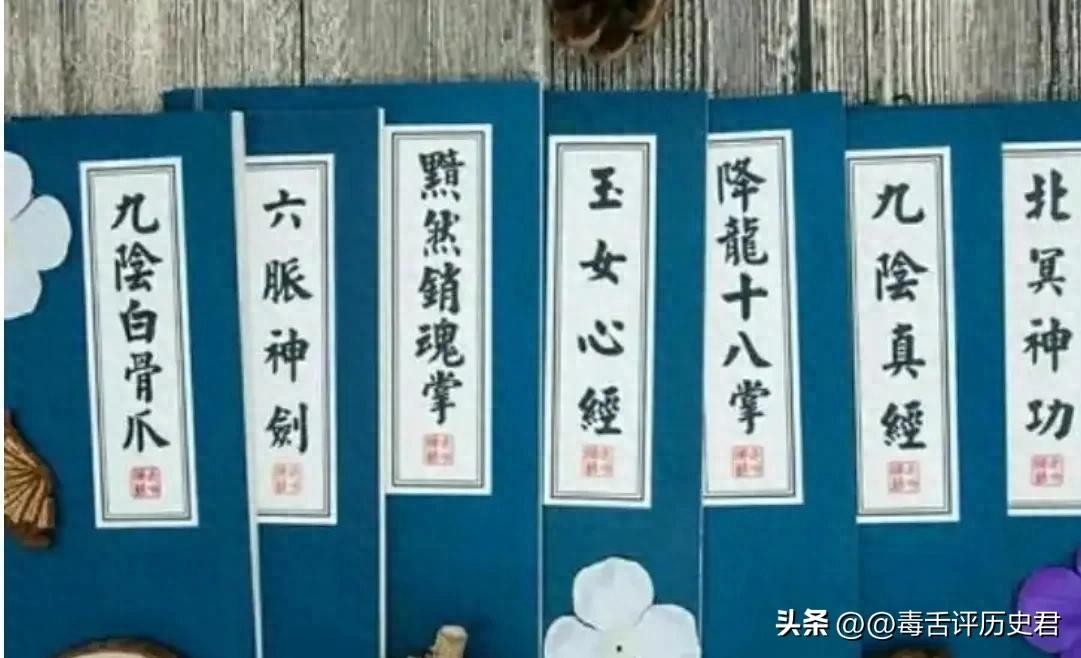 九陰白骨爪
六脈神劍
黯然銷魂掌
玉女心經
降龍十八掌
九陰真經
北冥神功
头条 @@毒舌评历史君